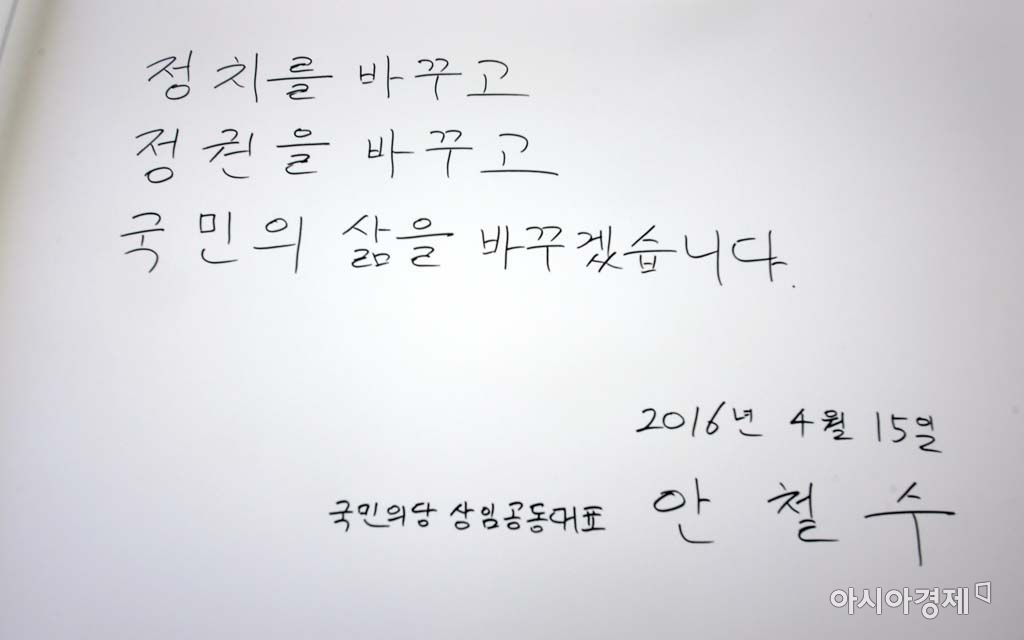 정치를 바꾸고
정권을 바꾸고
국민의 삶을 바꾸겠습니다.
2016년 4월 15일
국민의당 상임공동대표 안철수
아시아경제